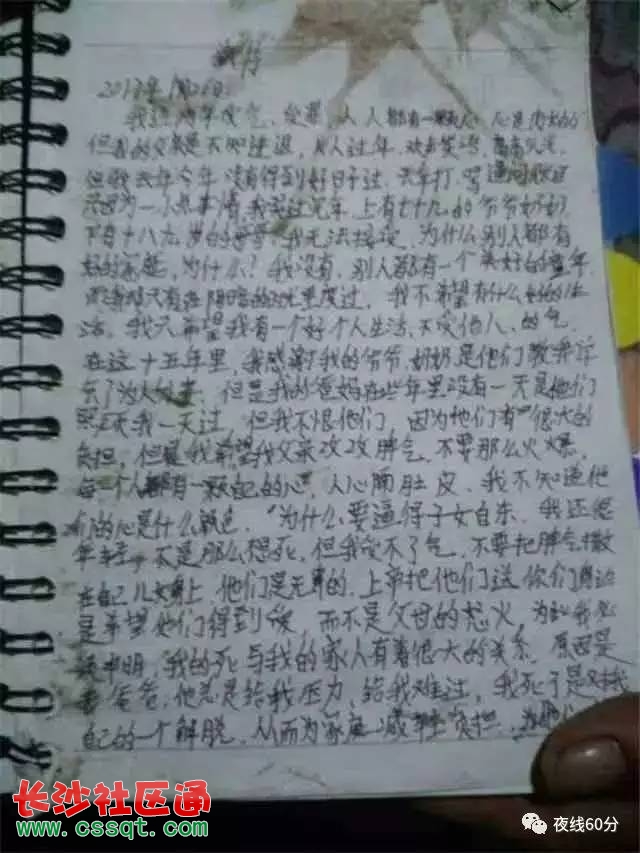 2017年1月26日
我这两年受气、受罪,人人都有一颗心,心是肉长的
但我的父亲是不知进退,别人过年,欢声笑语,高高兴兴,
但我去年今年没有得到好日子过,天天打骂
只因为一小点事情,我没过完年,上有七十九的爷爷奶奶
下有十八九岁的哥哥,我无法接受,为什么别人都有
好的家庭,为什么?我没有,别人都有一个美好的童年
只有在阴暗的度过,我不希望有什么好的生
活,我只希望我有一个好个人生活,不受他人的气
在这十五年里,我感谢我的爷爷奶奶是他们教我许
多了为人处事,但是我的爸妈在些年里没有一天是他们
陪我一天过,但我不恨他们,因为他们有很大的
负担,但是我希望我父亲改改脾气,不要那么火爆,
每一个人都有一颗自己的心,人心隔肚皮,我不知道他
们的心是什么颜色,为什么要逼得子女自杀,我还很
年轻,不是那么想死,但我受不了气,不要把脾气撒
在自己儿女身上,他们是无辜的,上帝把他们送你们身边
是希望他们得到爱,而不是父母的怒火,为此我
申明,我的死与我的家人有着很大的关系,原因是
爸爸,他总是给我压力,给我难过,我死了是对我
自己的一个解脱,从而为家庭减轻负担,
长沙社区通
www.cssqt.com
夜线60分